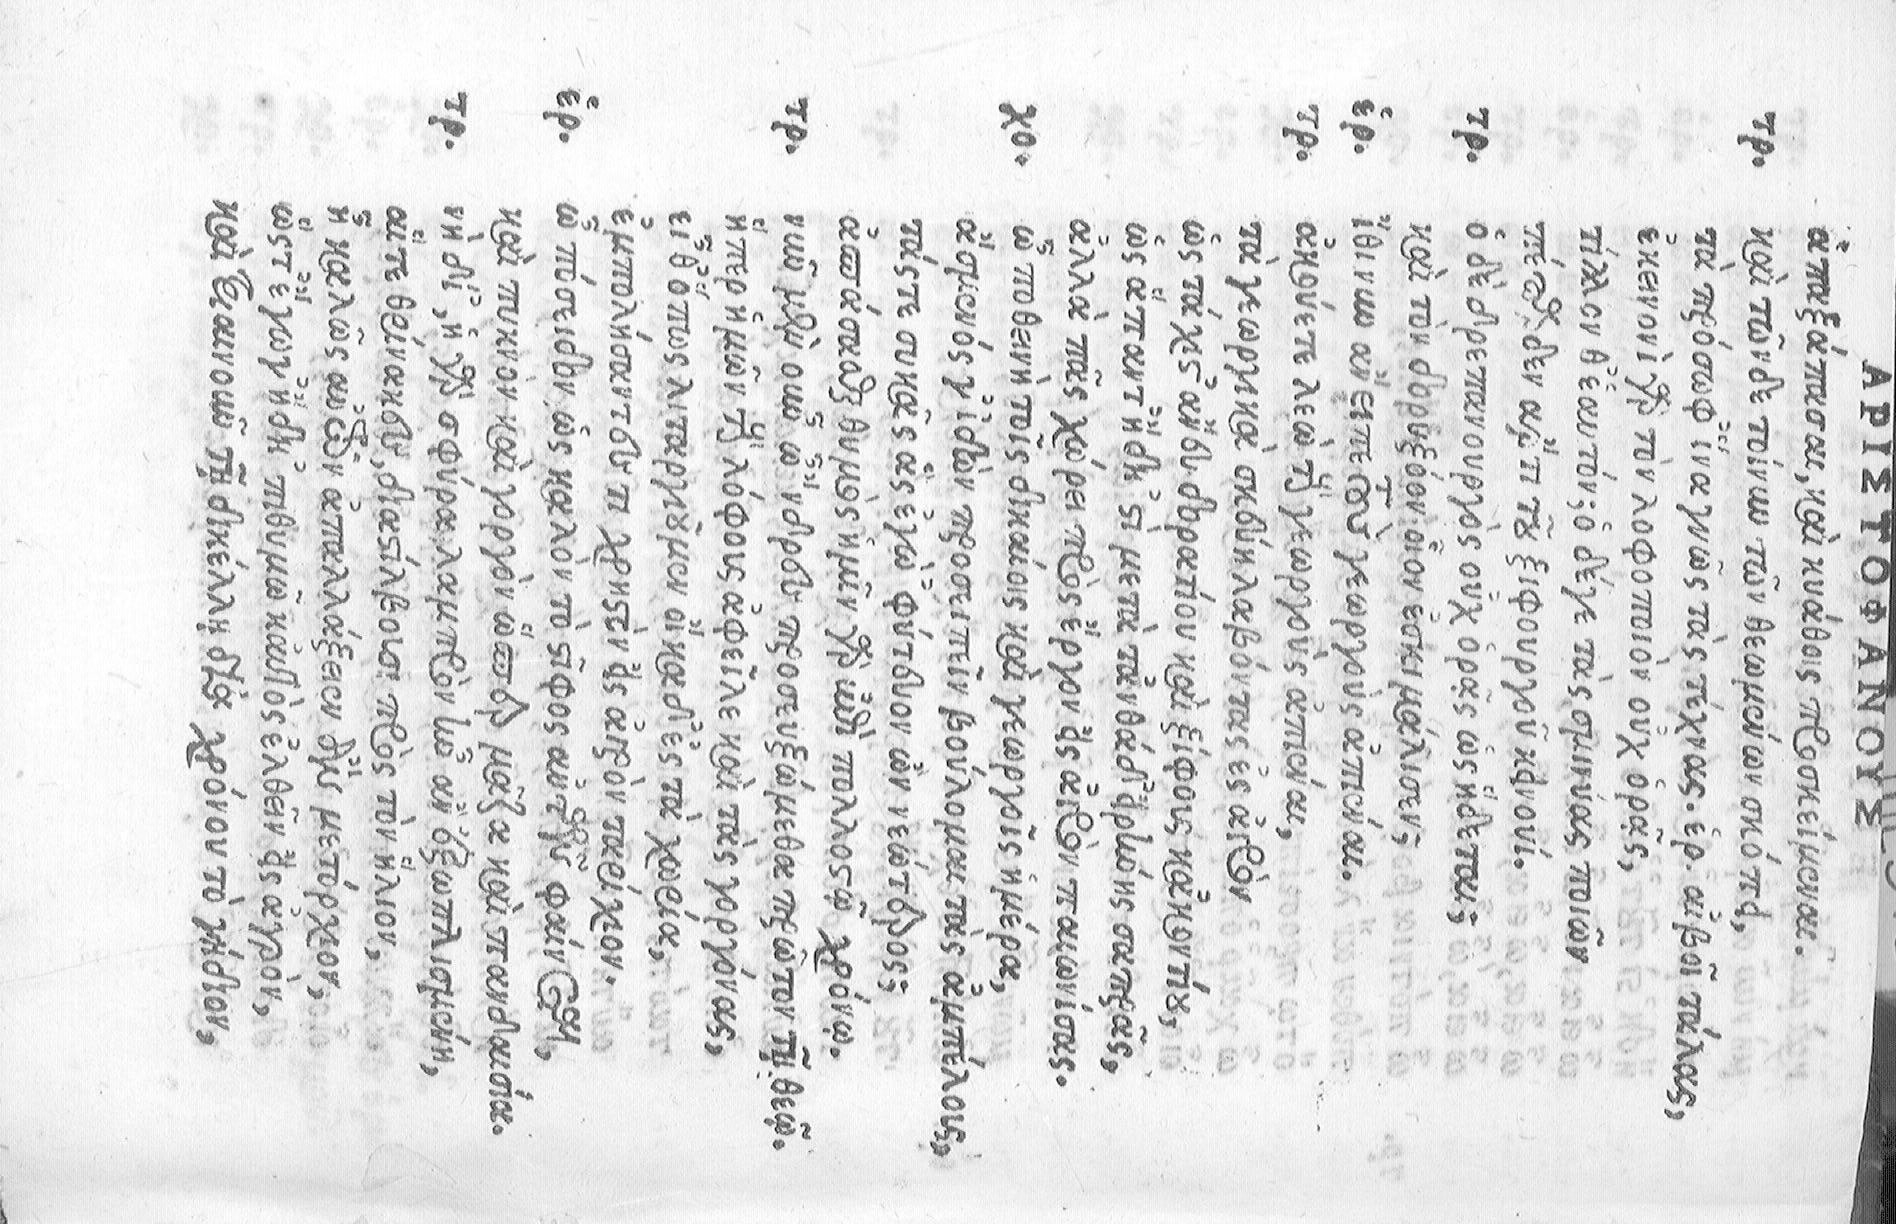 ΑΡΙΣΤΟΦΑΝΟΥΣ
ἁπαξάπασαι, καὶ κυάθοις προσκείμεναι.
τρ. καὶ τῶνδε τοίνυν τῶν θεωμένων σκόπει,
τὰ πρόσωφ ἵνα γνῶς τὰς τέχνας. ἑρ. αἰβοῖ τάλας,
ἐκεινονὶ γὰρ τὸν λοφοποιὸν οὐχ ὁρᾷς,
τίλλονθ ἑαυτόν; ὁ δέ γε τὰς σμινύας ποιῶν
πέπαρδεν ἄρτι τοῦ ξιφουργοῦ κεινουί.
τρ. ὁ δὲ δρεπανουργὸς οὐχ ὁρᾷς ὡς ἥδεται;
καὶ τὸν δορυξόον οἷον ἐσκιμάλισεν;
ἑρ. ἴθι νυν ἄνειπε τοὺς γεωργοὺς ἀπιέναι.
τρ. ἀκούετε λεὼ τοὺς γεωργοὺς ἀπιέναι,
τὰ γεωργικὰ σκεύη λαβόντας ἐς ἀγρὸν
ὡς τάχιστ ἄνευ δορατίου καὶ ξίφους κἀκοντίου,
ὡς ἅπαντ ἤδη ’στὶ μεστὰ τἀνθάδ εἰρήνης σαπρᾶς,
ἀλλὰ πᾶς χώρει πρὸς ἔργον εἰς ἀγρὸν παιωνίσας.
χο. ὦ ποθεινὴ τοῖς δικαίοις καὶ γεωργοῖς ἡμέρα,
ἄσμενός γ ἰδὼν προσειπεῖν βούλομαι τὰς ἀμπέλους,
τάς τε συκᾶς ἃς ἐγὼ φύτευον ὢν νεώτερος;
ἀσπάσασθαι θυμὸς ἡμῖν ἐστι πολλοστῷ χρόνῳ.
τρ. νῦν μὲν οὖν ὦνδρες προσευξώμεθα πρῶτον τῇ θεῷ.
ἥπερ ἡμῶν τοὺς λόφους ἀφεῖλε καὶ τὰς γοργόνας,
εἶθ ὅπως λιταργιοῦμεν οἴκαδ ἐς τὰ χωρία,
ἐμπολήσαντές τι χρηστὸν εἰς ἀγρὸν ταρίχιον.
ἑρ. ὦ πόσειδον ὡς καλὸν τὸ στῖφος αὐτῶν φαίνεται,
καὶ πυκνὸν καὶ γοργὸν ὥσπερ μᾶζα καὶ πανδαισία.
τρ. νὴ δί, ἡ γὰρ σφύρα λαμπρὸν ἦν ἄρ ἐξωπλισμένη,
αἵτε θρίνακες, διαστίλβουσι πρὸς τὸν ἥλιον,
ἦ καλῶς αὐτῶν ἀπαλλάξειεν ἂν μετόρχιον,
ὥστ ἔγωγ ἤδη ’πιθυμῶ καὐτὸς ἐλθεῖν εἰς ἀγρόν,
καὶ τριαινοῦν τῇ δικέλλῃ διὰ χρόνου τὸ γῄδιον,